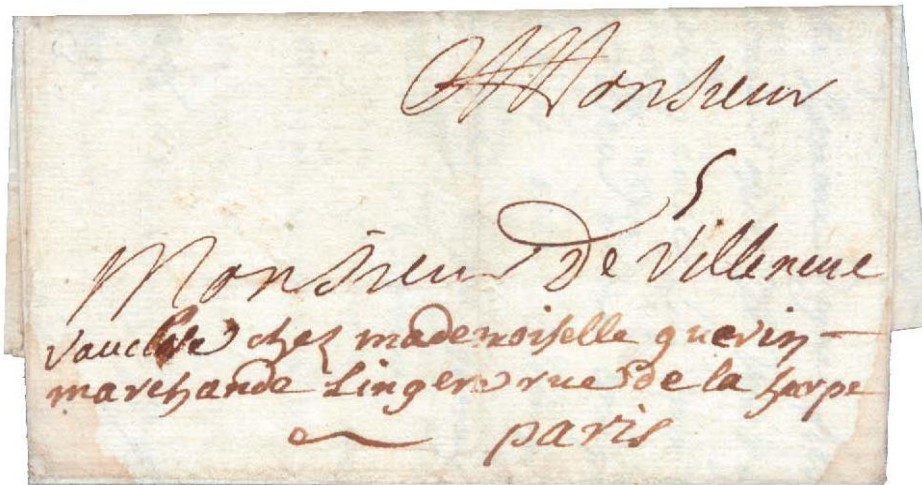 A Monsieur
5
Monsieur De Villeneuve
chez mademoiselle guerin
marchande Lingere rue de la harpe
paris